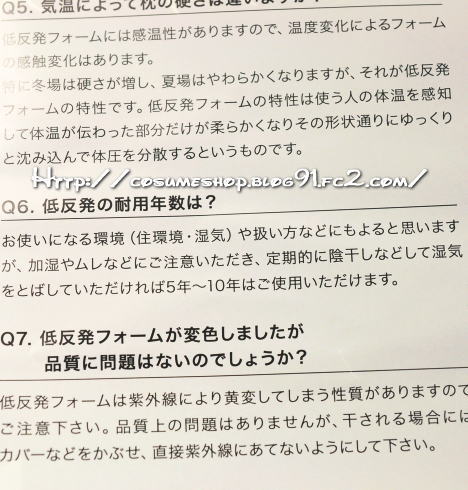 Q5. 気温によって枕の硬さは違いますか？
低反発フォームには感温性がありますので、温度変化によるフォーム
の感触変化はあります。
特に冬場は硬さが増し、夏場はやわらかくなりますが、それが低反発
フォームの特性です。低反発フォームの特性は使う人の体温を感知
して体温が伝わった部分だけが柔らかくなりその形状通りにゆっくり
と沈み込んで体圧を分散するというものです。
Http://cosumeshop.blog91.fc2.com/
Q6. 低反発の耐用年数は？
お使いになる環境（住環境・湿気）や扱い方などにもよると思います
が、加湿やムレなどにご注意いただき、定期的に陰干しなどして湿気
をとばしていただければ5年〜10年はご使用いただけます。
Q7. 低反発フォームが変色しましたが
品質に問題はないのでしょうか？
低反発フォームは紫外線により黄変してしまう性質がありますので
ご注意下さい。品質上の問題はありませんが、干される場合には
カバーなどをかぶせ、直接紫外線にあてないようにして下さい。